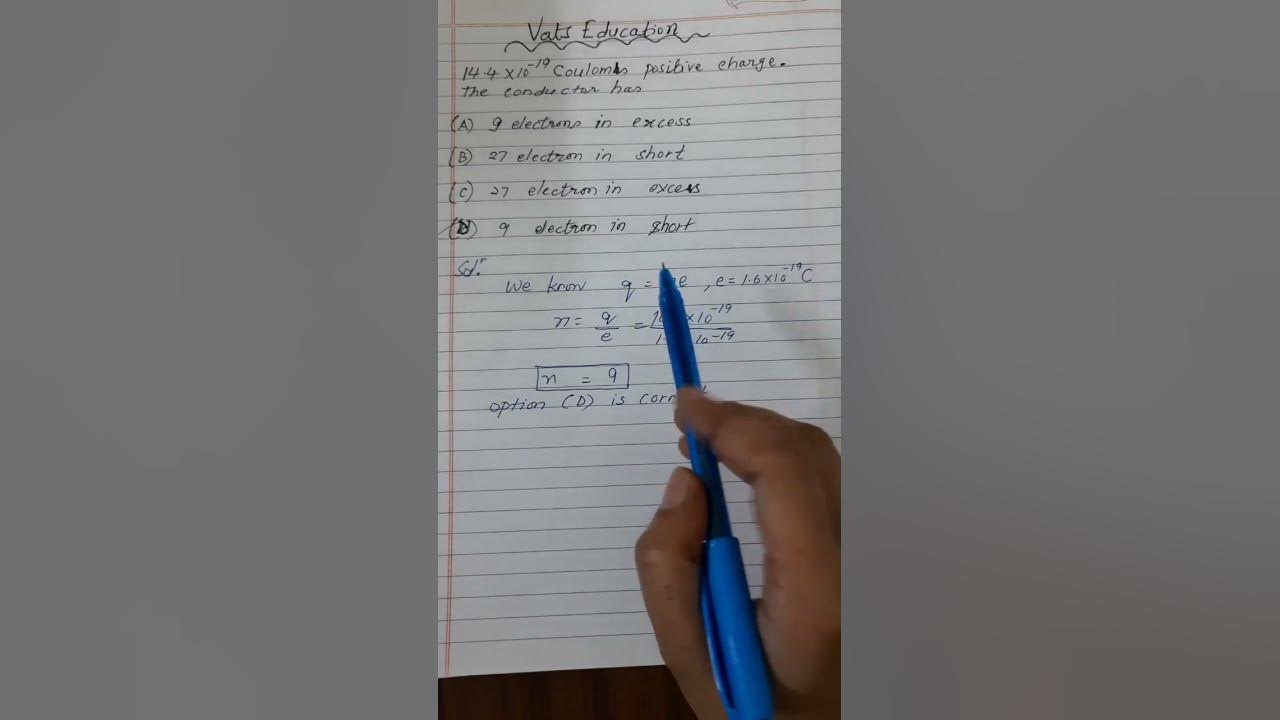 Vats Education
14.4 × 10⁻¹⁹ Coulombs positive charge.
the conductor has
(A) 9 electrons in excess
(B) 27 electron in short
(C) 27 electron in excess
(D) 9 electron in short
Solⁿ
We know q = e , e = 1.6 × 10⁻¹⁹ C
n = q/e = × 10⁻¹⁹ / 10⁻¹⁹
n = 9
option (D) is